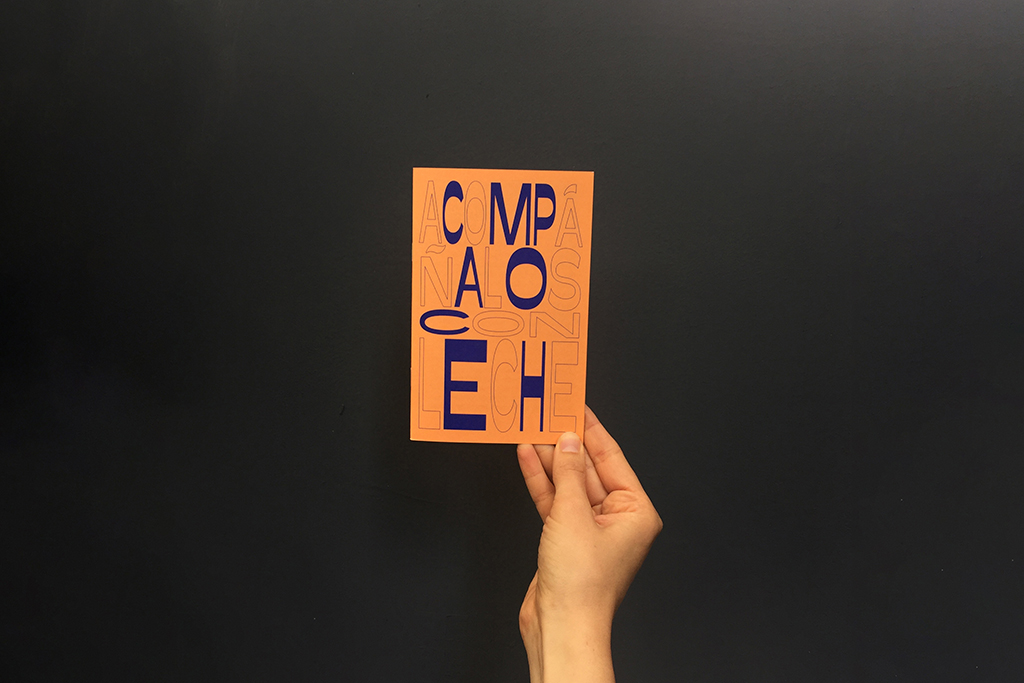 ACOMPÁ
ÑALOS
CON
LECHE